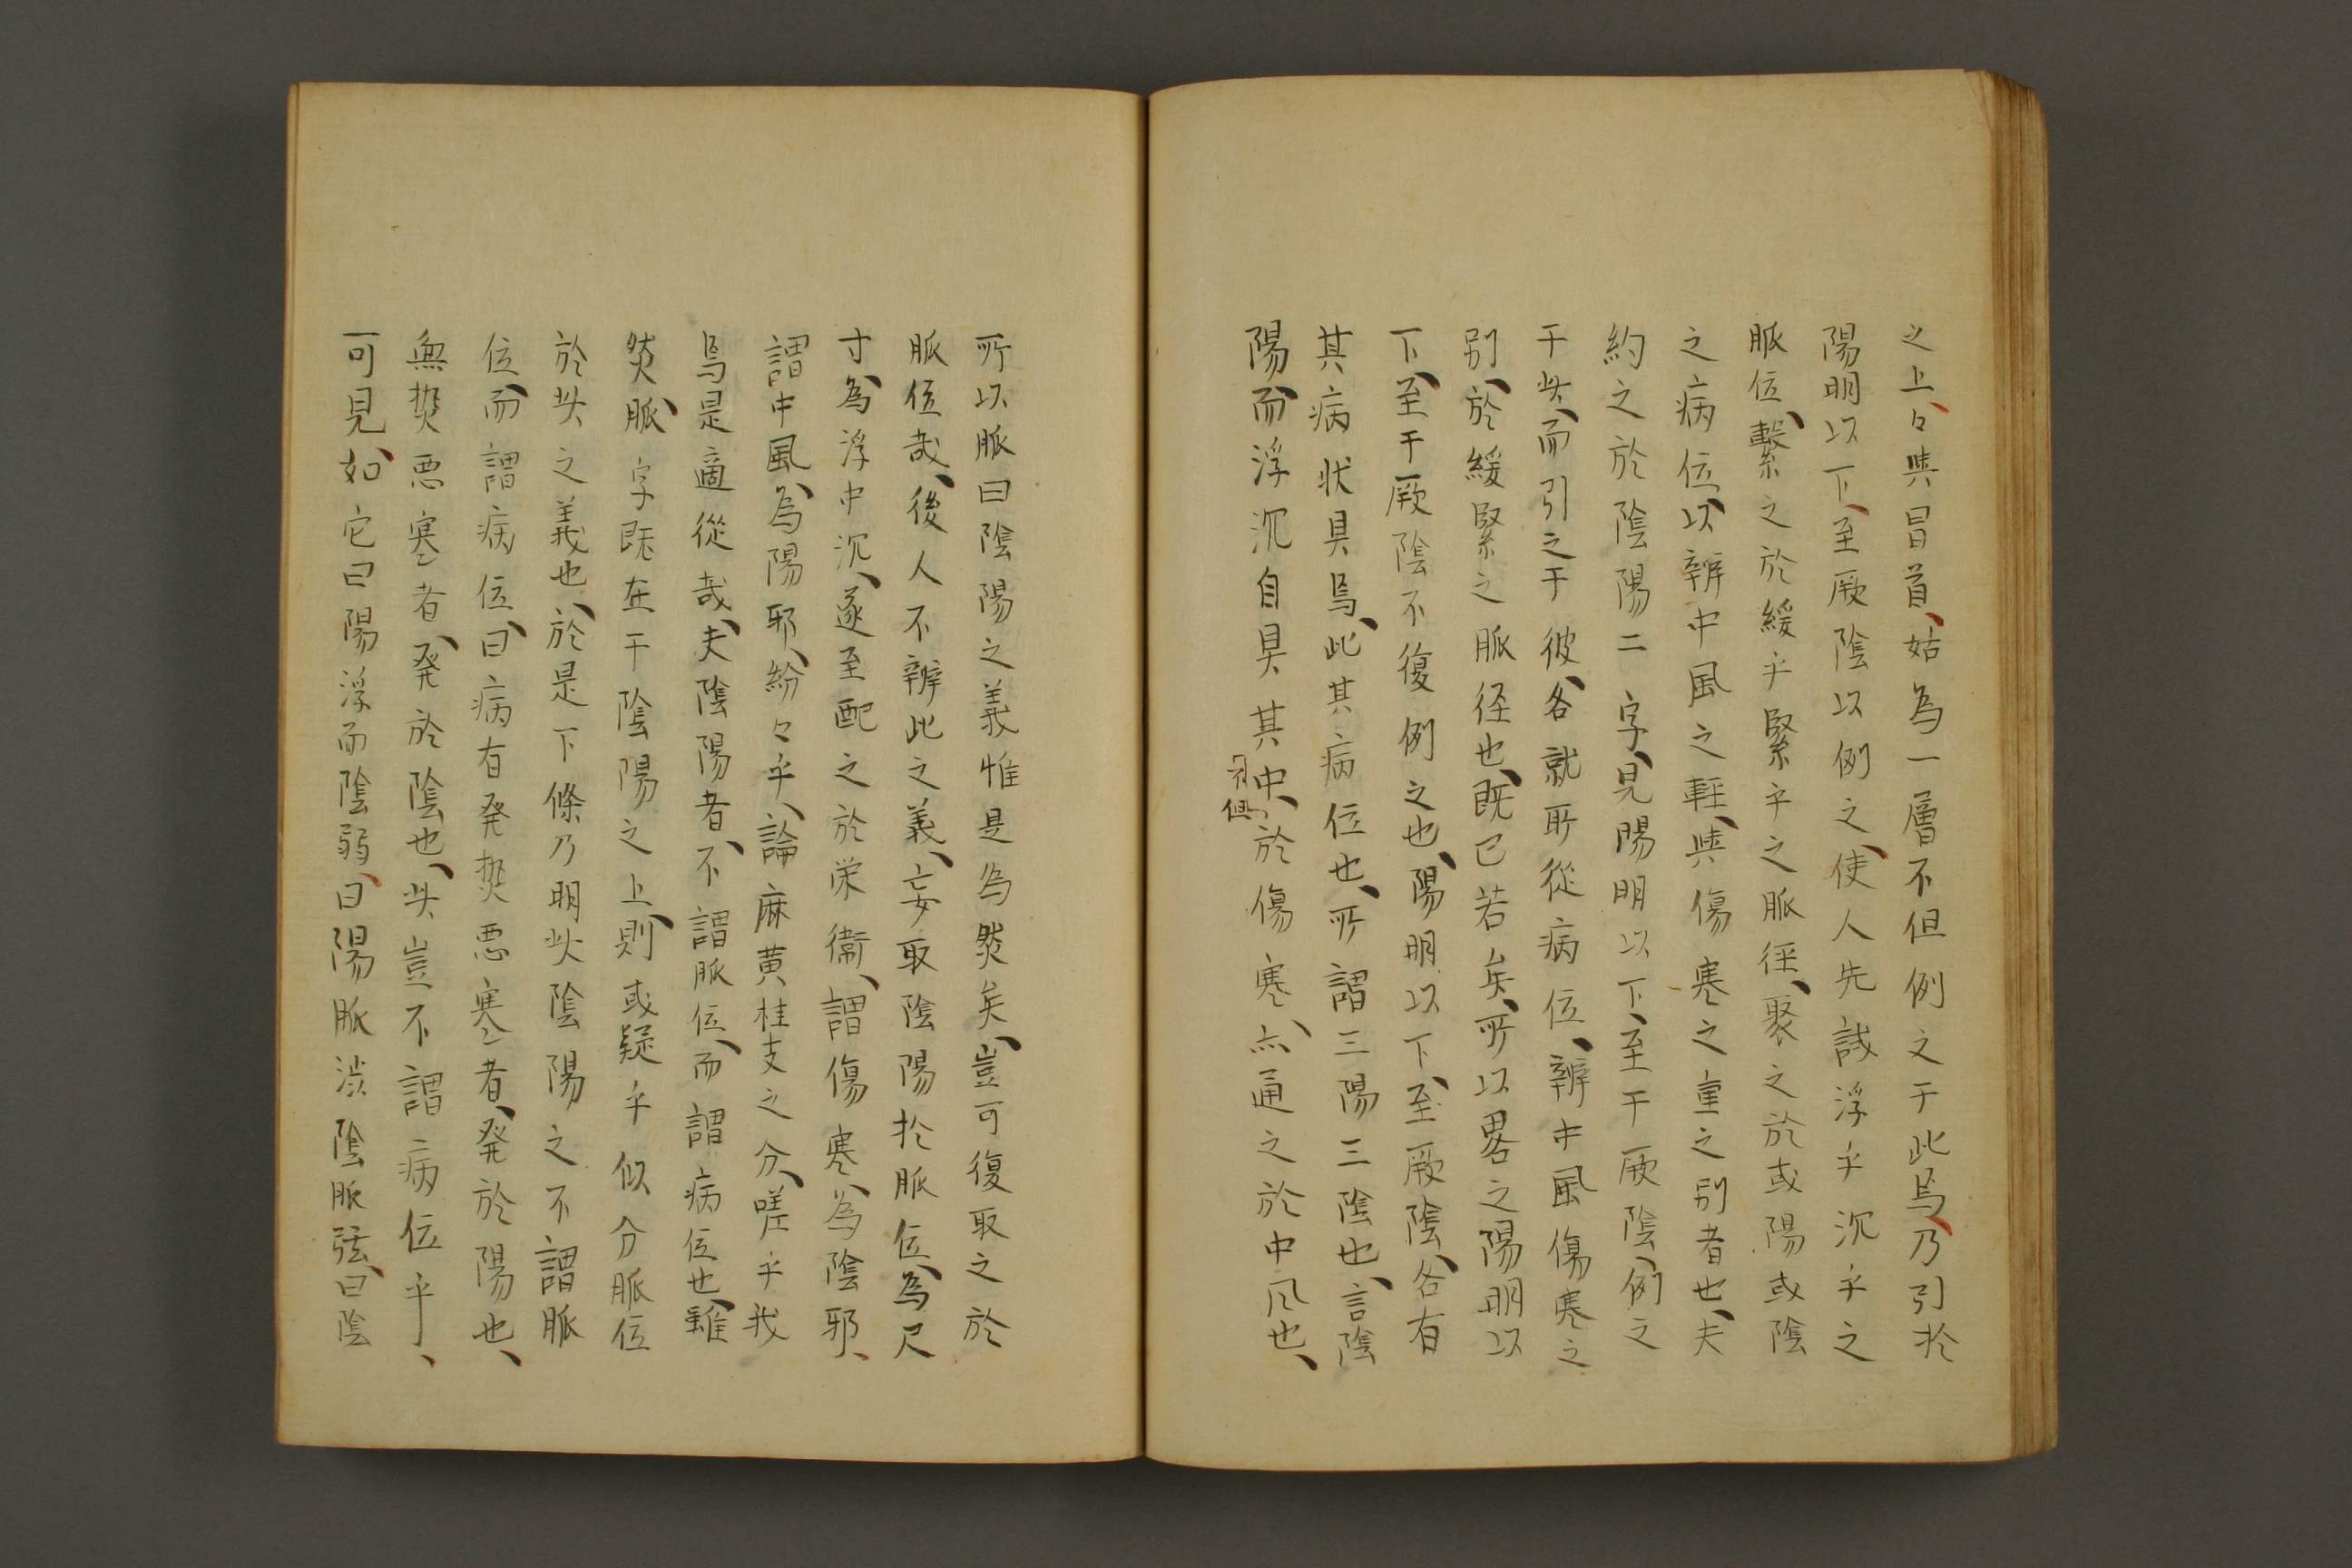 之上、々與冒首、姑為一層不但例之于此焉、乃引於
陽明以下、至厥陰以例之、使人先識浮乎沉乎之
脈位、繫之於緩乎緊乎之脈径、聚之於或陽或陰
之病位、以辨中風之輕、與傷寒之重之別者也、夫
約之於陰陽二字、見陽明以下、至于厥陰、例之
于此、而引之于彼、各就所從病位、辨中風傷寒之
別、於緩緊之脈径也、既已若矣、所以畧之陽明以
下、至于厥陰不復例之也、陽明以下、至厥陰、各有
其病状具焉、此其病位也、所謂三陽三陰也、言陰
陽而浮沉自具其中、於傷寒、亦通之於中风也、
但
所以脈曰陰陽之義惟是為然矣、豈可復取之於
脈位哉、後人不辨此之義、妄取陰陽於脈位、為尺
寸、為浮中沉、遂至配之於栄衛、謂傷寒、為陰邪、
謂中風、為陽邪、紛々乎、論麻黄桂支之分、嗟乎我
焉是適從哉、夫陰陽者、不謂脈位、而謂病位也、雖
然、脈字既在于陰陽之上、則或疑乎似分脈位
於此之義也、於是下條乃明此陰陽之不謂脈
位、而謂病位、曰病有発熱悪寒者、発於陽也、
無熱悪寒者、発於陰也、此豈不謂病位乎、
可見、如它曰陽浮而陰弱、曰陽脈渋陰脈弦、曰陰